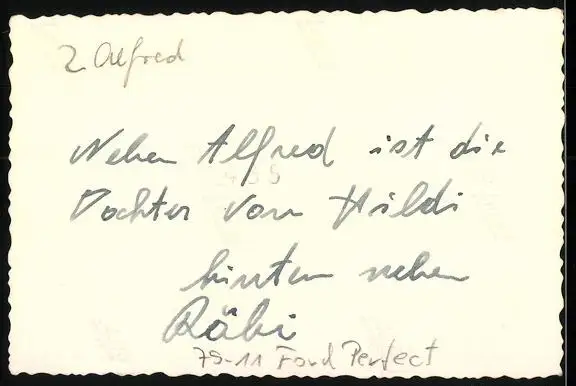 2 Alfred
Neben Alfred ist die
Dochter von Hildi
hinten neben
Räbi
79-11 Ford Perfect